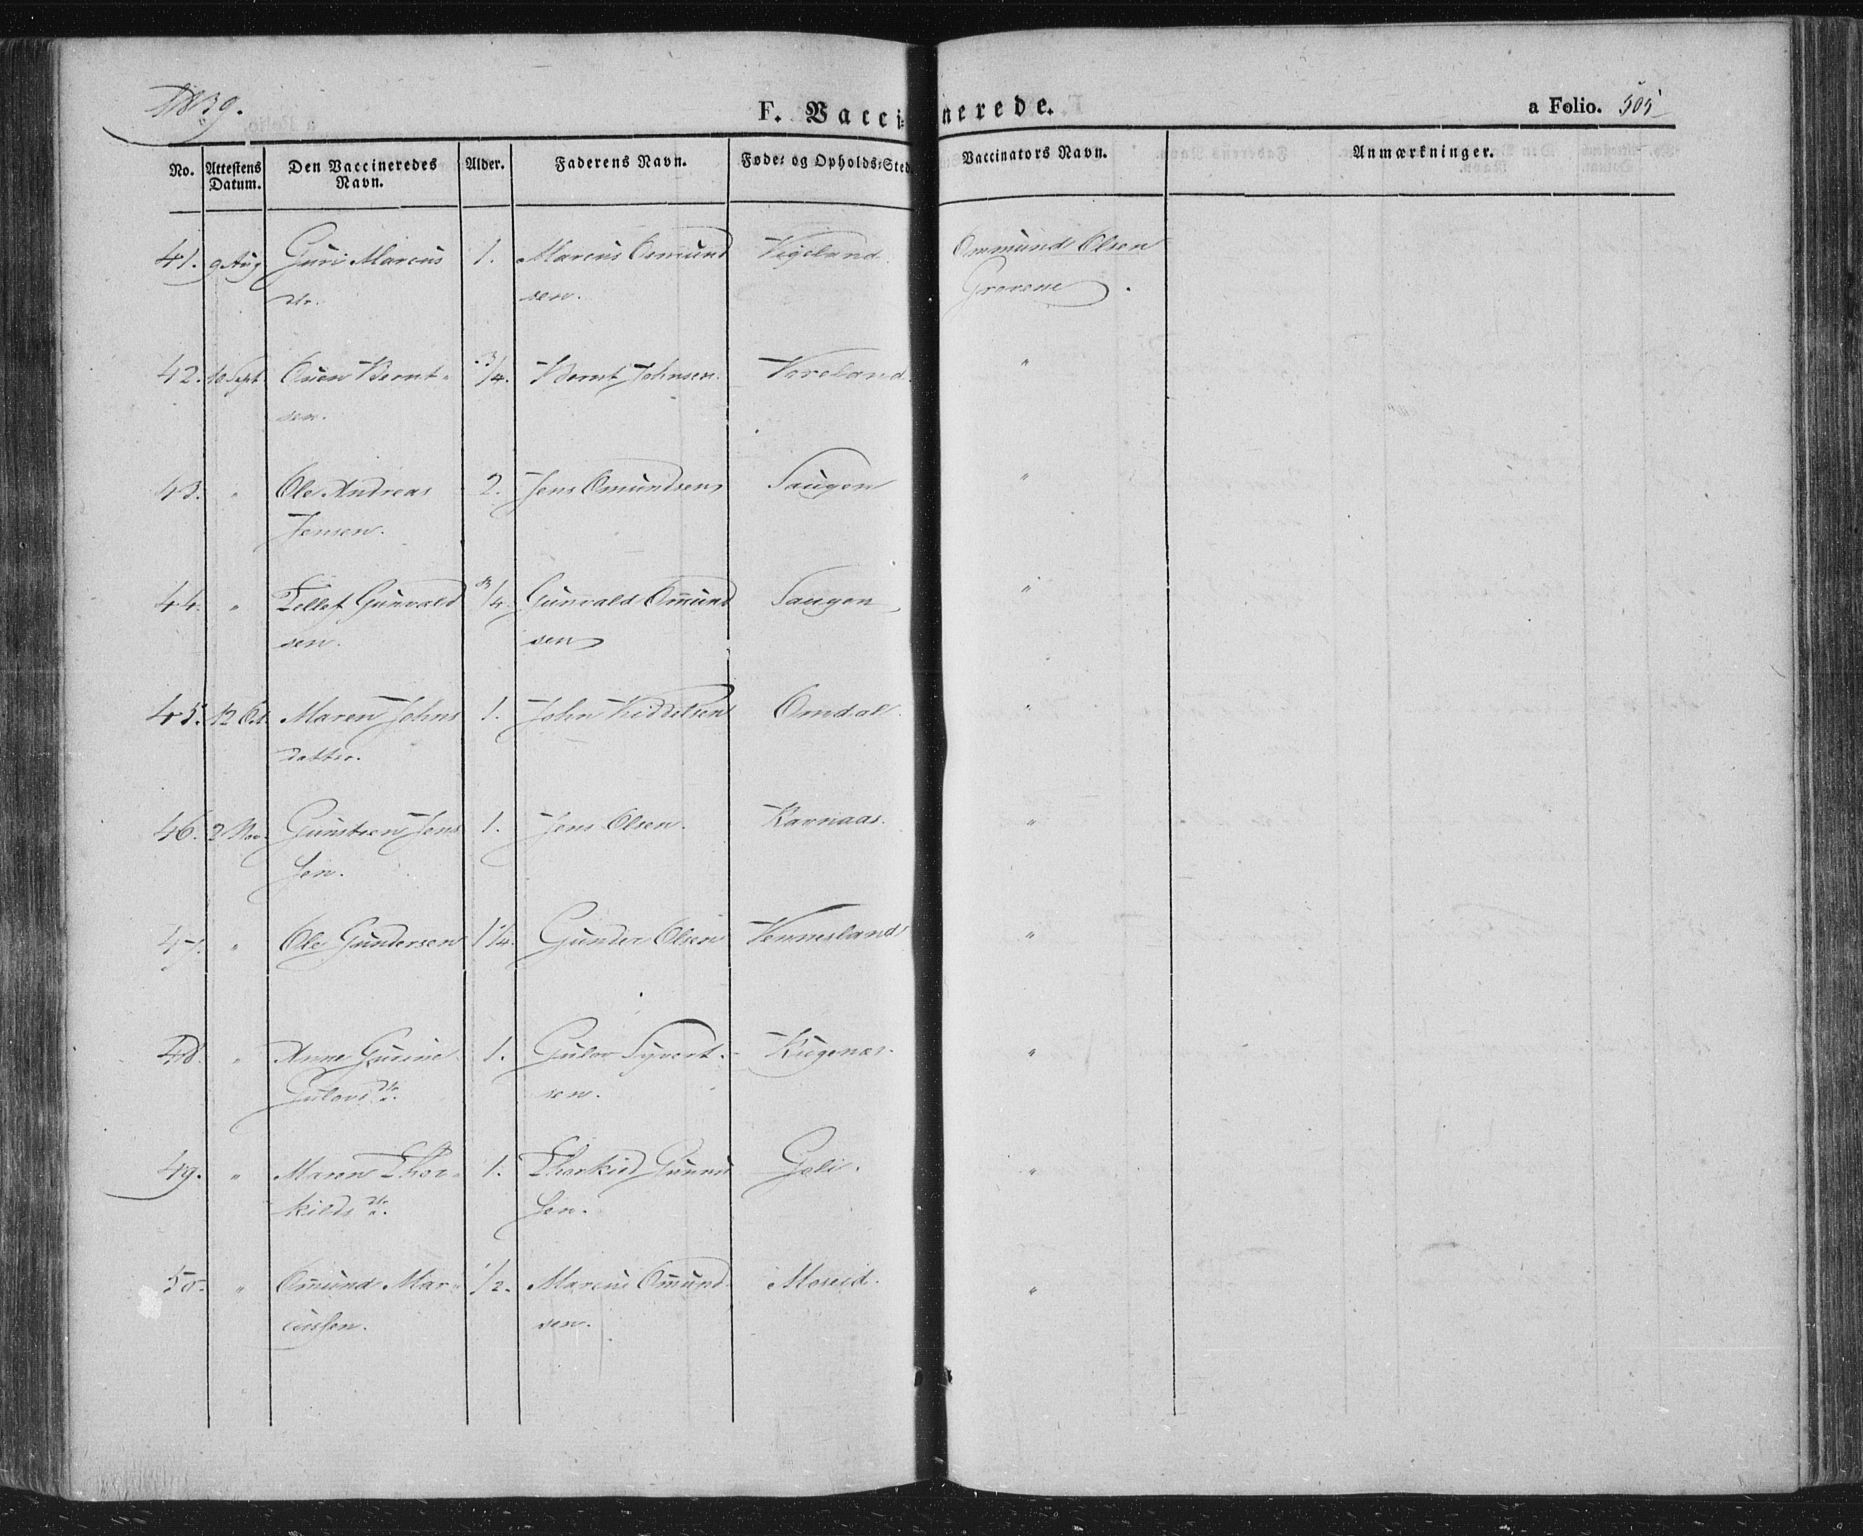 1839.
F. Vaccinerede.
a Folio. 505
No. Attestens Datum. Den Vaccineredes Navn. Alder. Faderens Navn. Føde- og Opholds-Sted. Vaccinators Navn. Anmærkninger.
41. 9 Aug Guri Marcus 1. Marcus Osmund Vigeland. Ommund Olsen
dr. sen. Grovene.
42. 10 Sept Osuen Bernt- 3/4. Bernt Johnsen. Voreland. "
sen.
43. " Ole Andreas 2. Jens Omundsen Saugen "
Jensen.
44. " Tellef Gunvald 3/4. Gunvald Omund Saugen "
sen. sen
45. 12 Oct Maren Johns 1. John Kiddelsen Omdal. "
datter.
46. 2 Nov. Gunsteen Jens 1. Jens Olsen. Ravnaas. "
sen.
47. " Ole Gundersen 1 1/4. Gunder Olsen Vennesland "
48. " Anne Gurine 1. Gulov Syvert- Rugenæs. "
Gulovs dr. sen.
49. " Maren Thor- 1. Thorkild Gunnu "
kilds dr. sen.
50. " Omund Mar- 1/2. Marcus Omund- Moseid. "
cussen. sen.